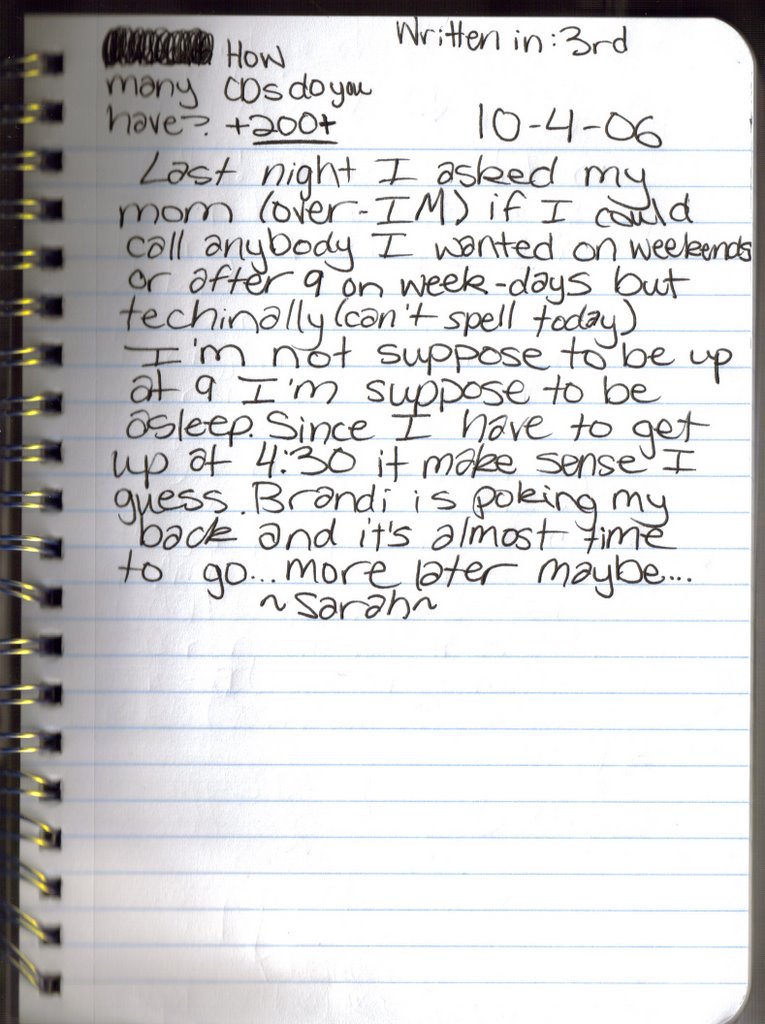 Written in: 3rd
How
many CDs do you
have? +200+
10-4-06
Last night I asked my
mom (over-IM) if I could
call anybody I wanted on weekends
or after 9 on week-days but
techinally (can't spell today)
I'm not suppose to be up
at 9 I'm suppose to be
asleep. Since I have to get
up at 4:30 it make sense I
guess. Brandi is poking my
back and it's almost time
to go... more later maybe...
~Sarah~